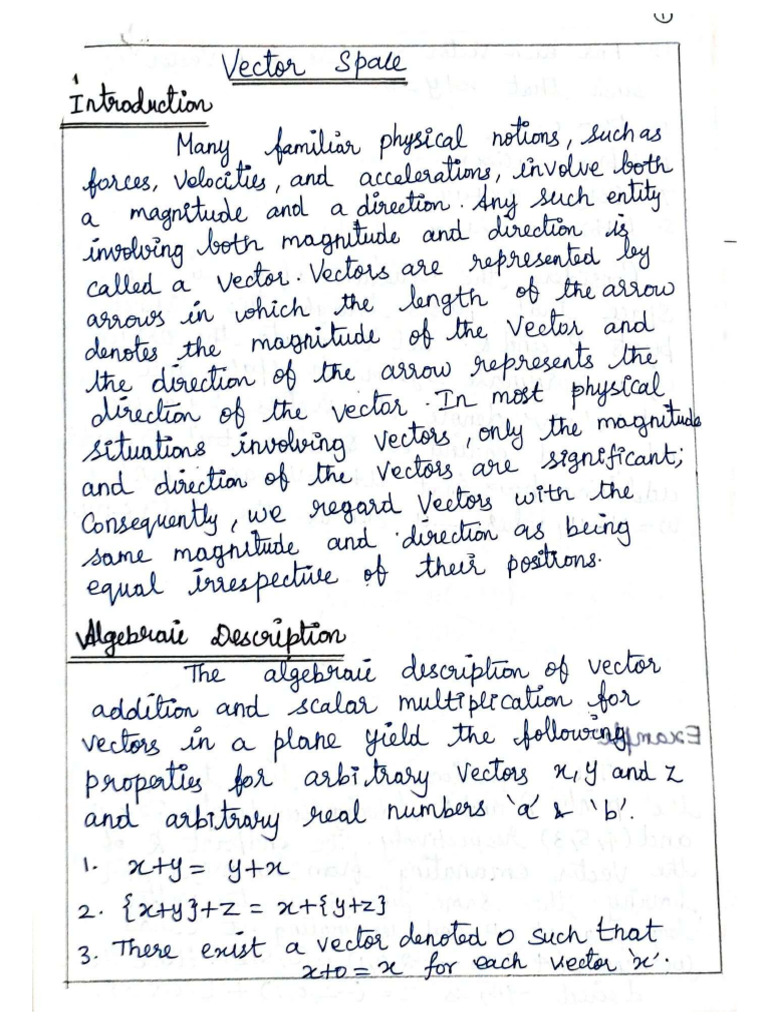 1
Vector Space
Introduction
Many familiar physical notions, such as
forces, velocities, and accelerations, involve both
a magnitude and a direction. Any such entity
involving both magnitude and direction is
called a vector. Vectors are represented by
arrows in which the length of the arrow
denotes the magnitude of the vector and
the direction of the arrow represents the
direction of the vector. In most physical
situations involving vectors, only the magnitude
and direction of the vectors are significant;
Consequently, we regard vectors with the
same magnitude and direction as being
equal irrespective of their positions.
Algebraic Description
The algebraic description of vector
addition and scalar multiplication for
vectors in a plane yield the following
properties for arbitrary vectors x, y and z
and arbitrary real numbers 'a' & 'b'.
1. x+y = y+x
2. {x+y}+z = x+{y+z}
3. There exist a vector denoted 0 such that
x+0 = x for each vector 'x'.